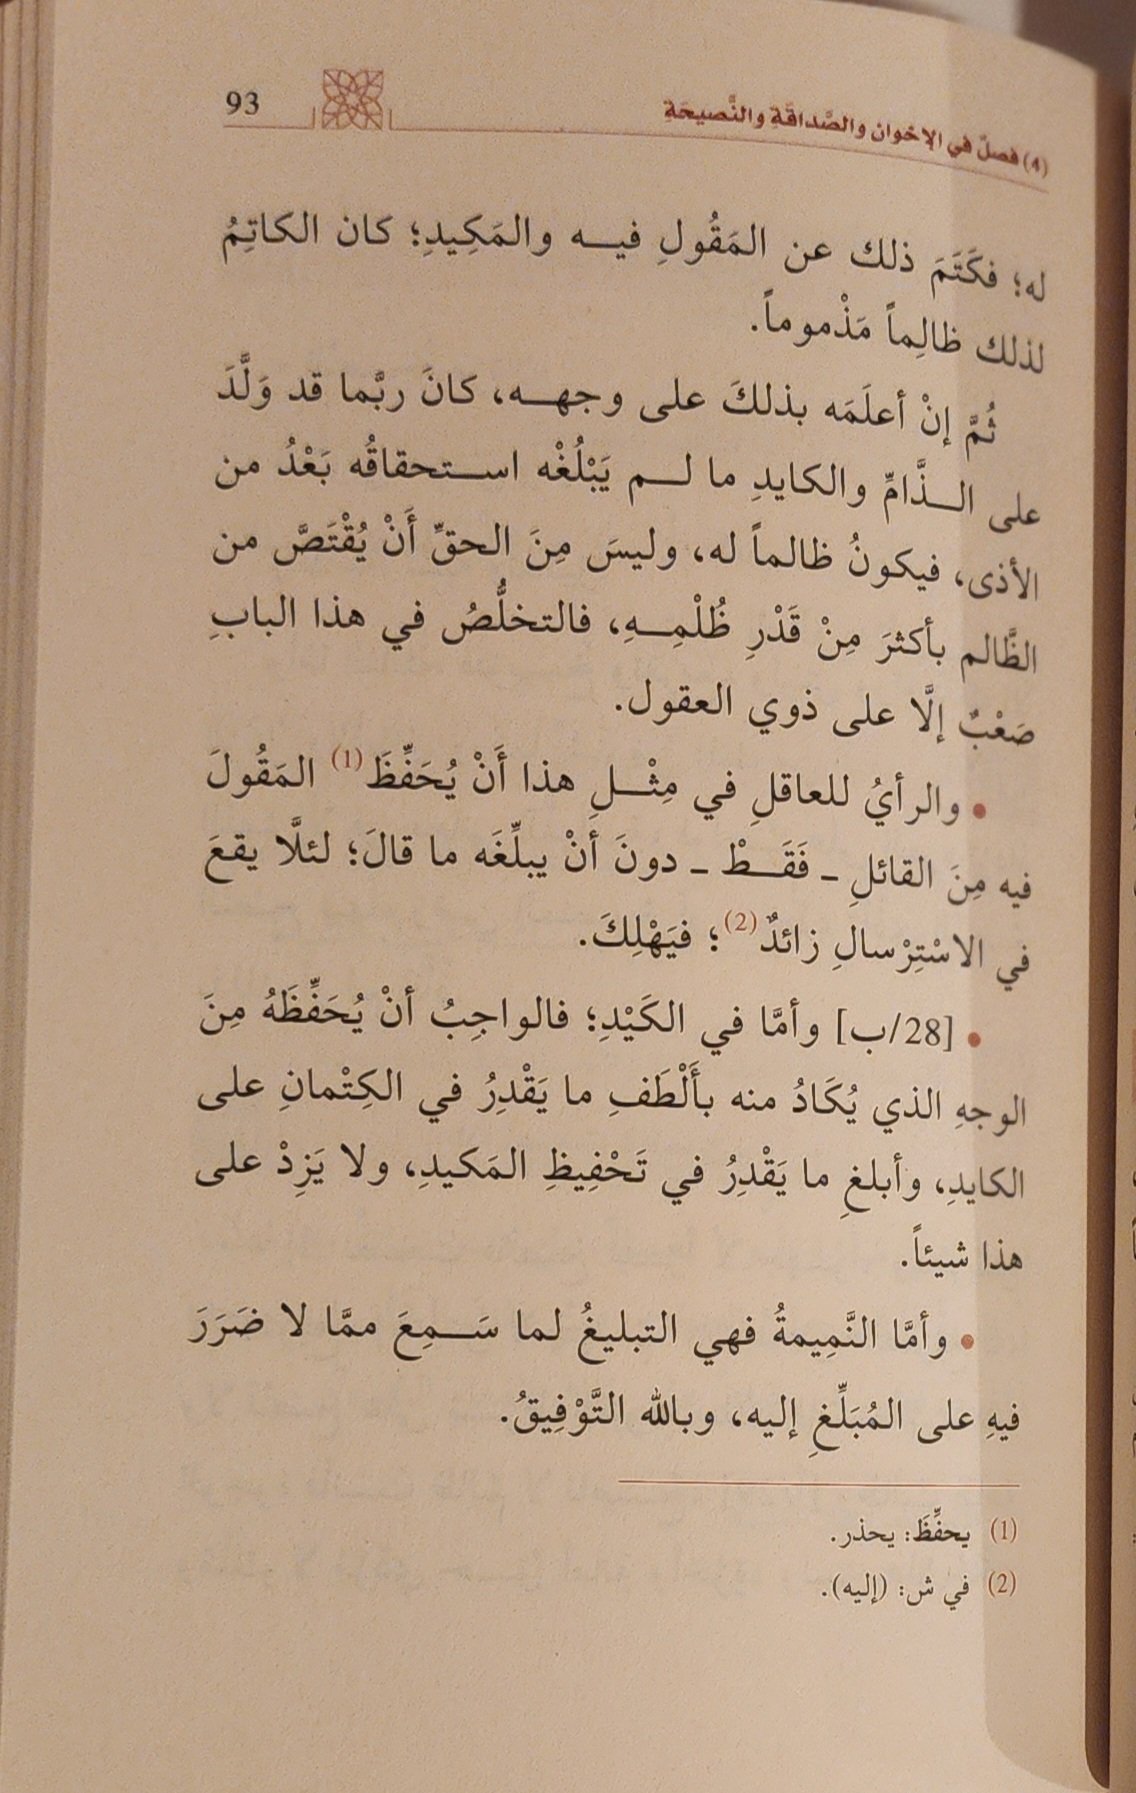 (4) فصلٌ في الإخوان والصَّداقَةِ والنَّصيحَةِ
93
له؛ فكَتَمَ ذلك عن المَقُولِ فيه والمَكِيدِ؛ كان الكاتِمُ
لذلك ظالِماً مَذْموماً.
ثُمَّ إنْ أعلَمَه بذلكَ على وجهه، كانَ ربَّما قد وَلَّدَ
على الذَّامِّ والكايدِ ما لم يَبْلُغْه استحقاقُه بَعْدُ من
الأذى، فيكونُ ظالماً له، وليسَ مِنَ الحقِّ أَنْ يُقْتَصَّ من
الظَّالم بأكثرَ مِنْ قَدْرِ ظُلْمِهِ، فالتخلُّصُ في هذا البابِ
صَعْبٌ إلَّا على ذوي العقول.
• والرأيُ للعاقلِ في مِثْلِ هذا أَنْ يُحَفِّظَ(1) المَقُولَ
فيه مِنَ القائلِ ـ فَقَطْ ـ دونَ أنْ يبلِّغَه ما قالَ؛ لئلَّا يقعَ
في الاسْتِرْسالِ زائدٌ(2)؛ فيَهْلِكَ.
• [28/ب] وأمَّا في الكَيْدِ؛ فالواجِبُ أنْ يُحَفِّظَهُ مِنَ
الوجهِ الذي يُكَادُ منه بأَلْطَفِ ما يَقْدِرُ في الكِتْمانِ على
الكايدِ، وأبلغِ ما يَقْدِرُ في تَحْفِيظِ المَكيدِ، ولا يَزِدْ على
هذا شيئاً.
• وأمَّا النَّمِيمةُ فهي التبليغُ لما سَمِعَ ممَّا لا ضَرَرَ
فيهِ على المُبَلِّغِ إليه، وبالله التَّوْفِيقُ.
(1) يحفِّظَ: يحذر.
(2) في ش: (إليه).